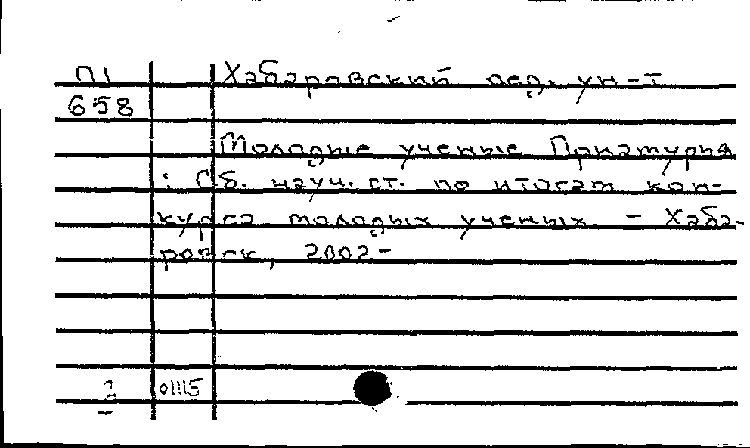 П1 Хабаровский пед. ун-т
658
Молодые ученые Приамурья
: Сб. науч. ст. по итогам кон-
курса молодых ученых. - Хаба-
ровск, 2002-
01115